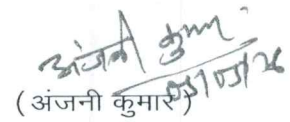 अंजनी कुमार
05/05/26
(अंजनी कुमार)